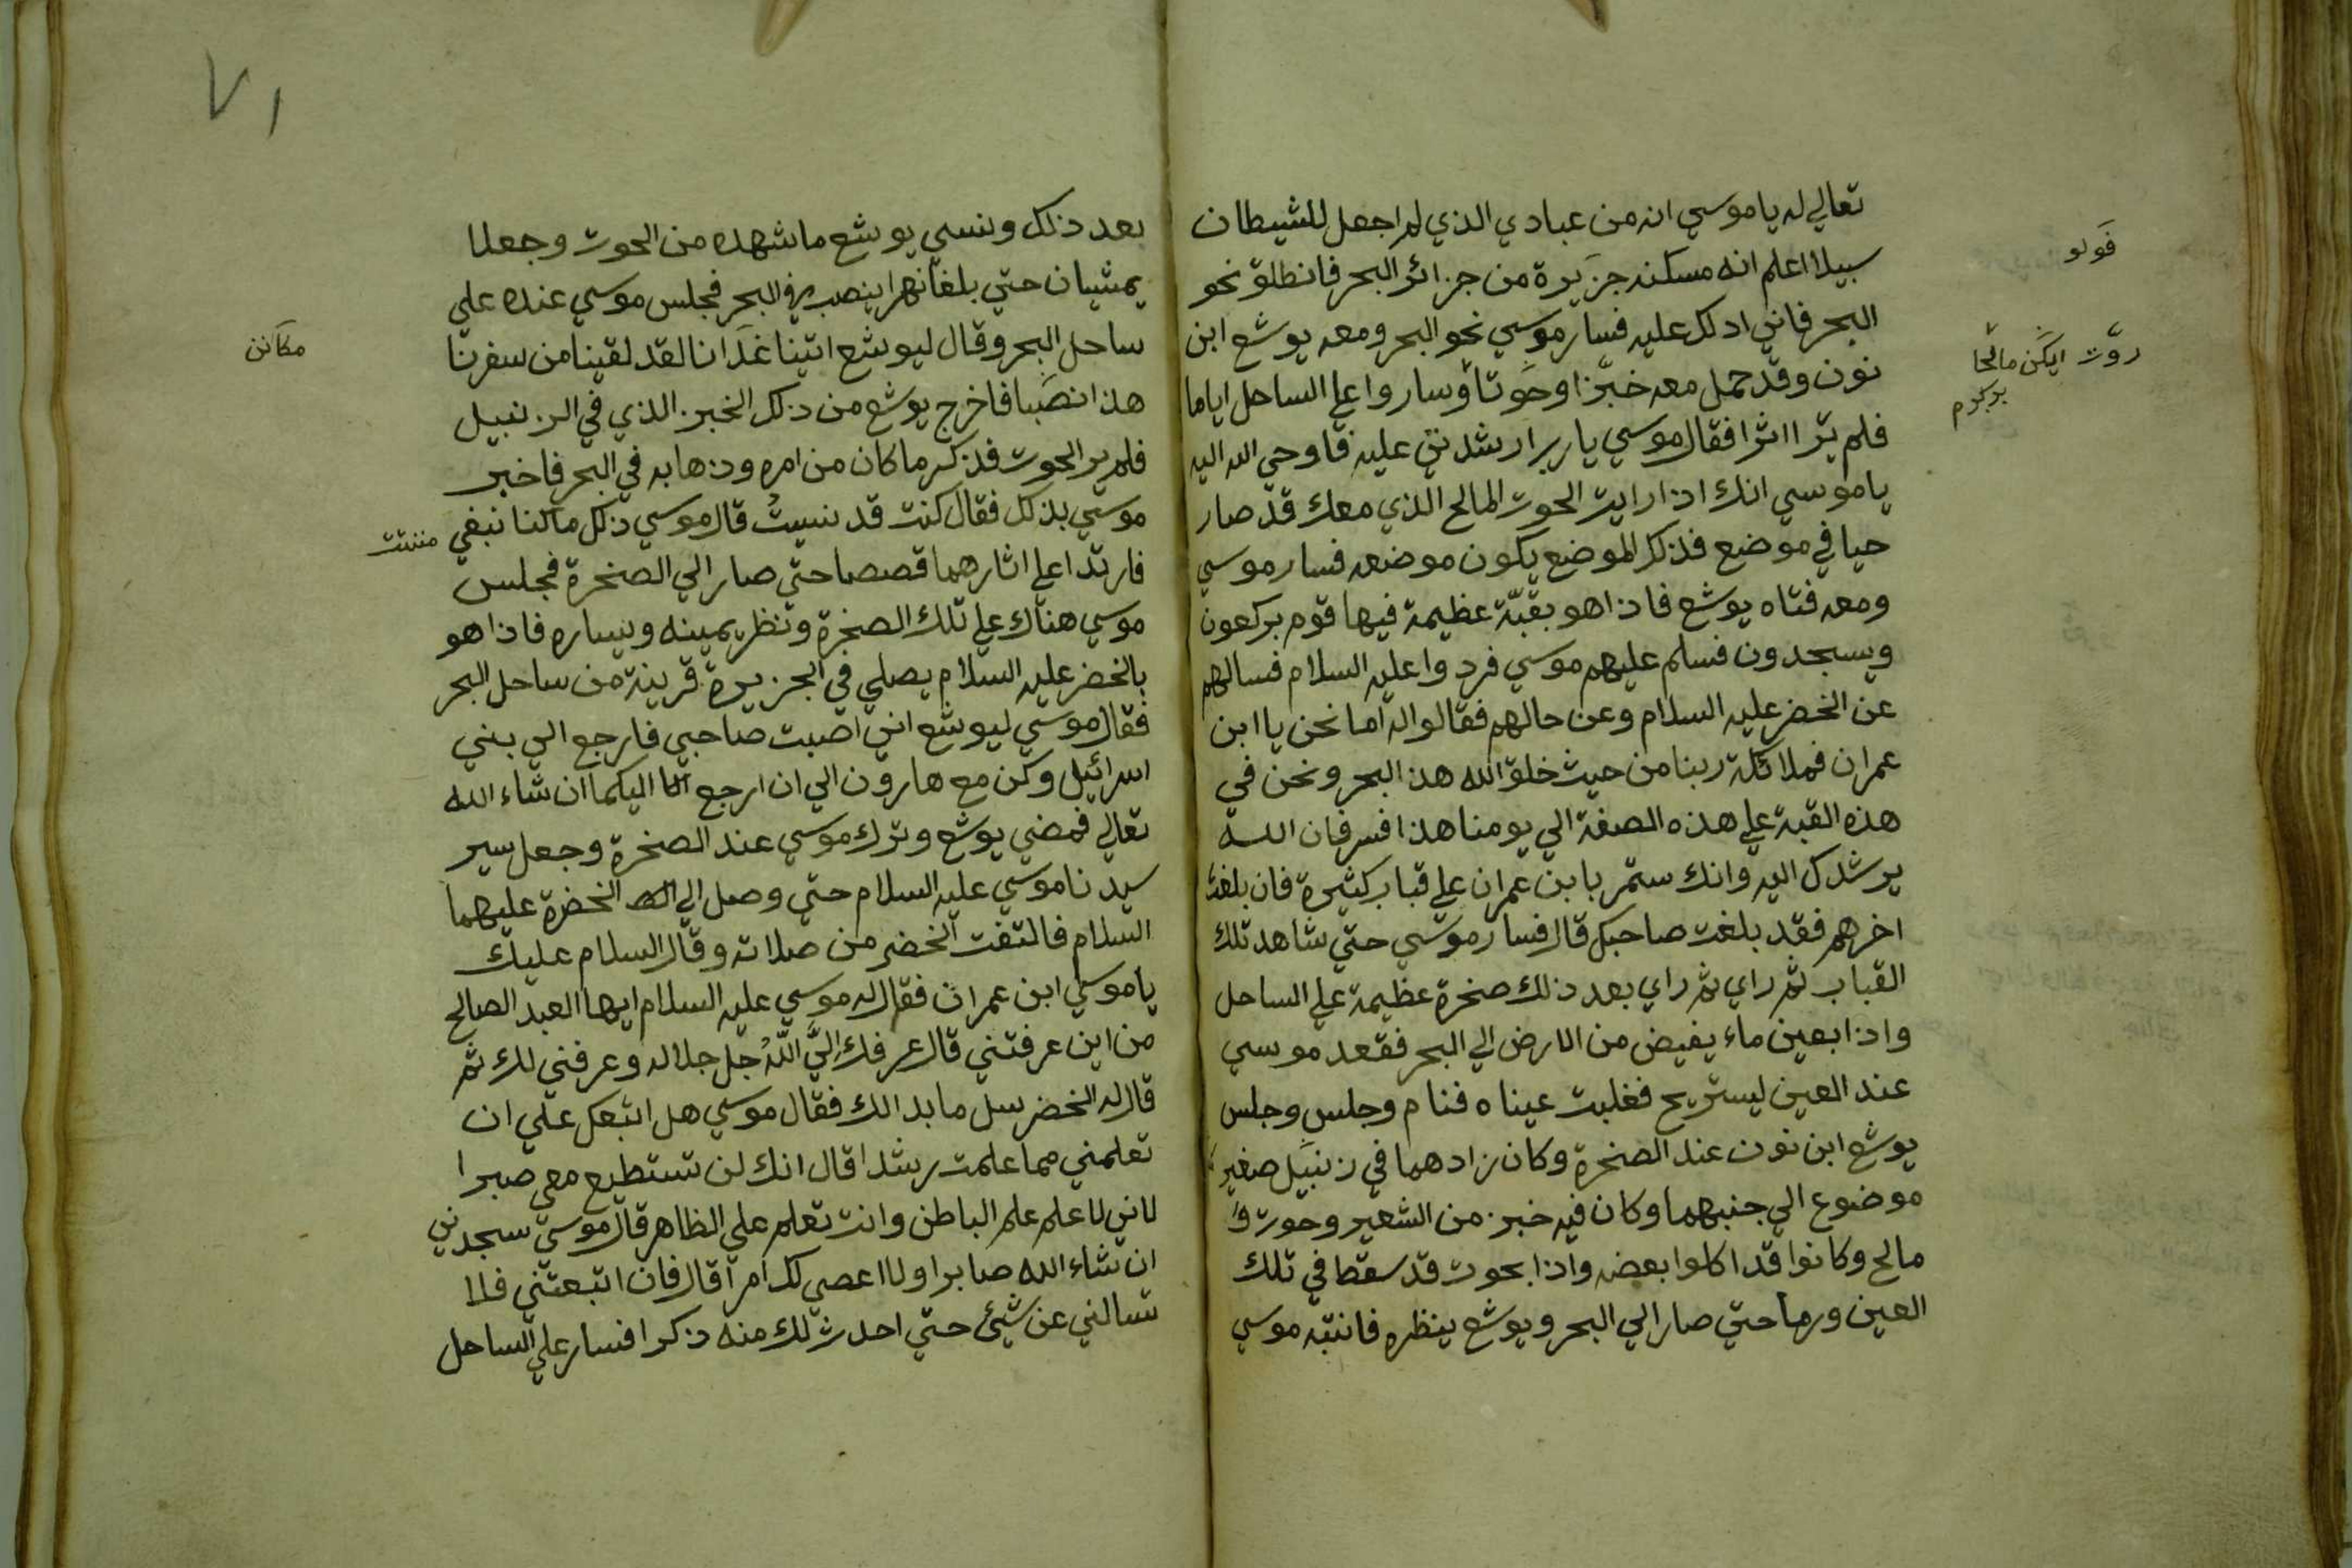 تعالي له ياموسي انه من عبادي الذي لم اجعل للشيطان
سبيلا اعلم انه مسكنه جزيرة من جزائر البحر فانطلق نحو
البحر فاني ادلك عليه فسار موسي نحو البحر ومعه يوشع ابن
نون وقد حمل معه خبزا وحوتا وساروا علي الساحل اياما
فلم ير اثرا فقال موسي يا رب ارشدني عليه فاوحي الله اليه
ياموسي انك اذا رايت الحوت المالح الذي معك قد صار
حيا في موضع فذلك الموضع يكون موضعه فسار موسي
ومعه فتاه يوشع فاذا هو بقبّة عظيمة فيها قوم يركعون
ويسجدون فسلم عليهم موسي فردوا عليه السلام فسالهم
عن الخضر عليه السلام وعن حالهم فقالوا له اما نحن يا ابن
عمران فملائكة ربنا من حيث خلق الله هذ البحر ونحن في
هذه القبة علي هذه الصفة الي يومنا هذا فسر فان الله
يرشدك اليه وانك ستمر يا بن عمران علي قباب كثيرة فان بلغت
اخرهم فقد بلغت صاحبك قال فسار موسي حتي شاهد تلك
القباب ثم راي ثم راي بعد ذلك صخرة عظيمة علي الساحل
واذا بعين ماء يفيض من الارض الي البحر فقعد موسي
عند العين ليستريح فغلبت عيناه فنام وجلس وجلس
يوشع ابن نون عند الصخرة وكان زادهما في زنبيل صغير
موضوع الي جنبهما وكان فيه خبز من الشعير وحوت و
مالح وكانوا قد اكلوا بعضه واذا بحوت قد سقط في تلك
العين ورما حتي صار الي البحر ويوشع ينظره فانتبه موسي
فولو
روت ايكن مالحا
بركرم
٧١
بعد ذلك ونسي يوشع ما شهده من الحوت وجعلا
يمشيان حتي بلغا نهرا ينصب في البحر فجلس موسي عنده علي
ساحل البحر وقال ليوشع اتينا غدانا لقد لقينا من سفرنا
هذا نصبا فاخرج يوشع من ذلك الخبز الذي في الزنبيل
فلم ير الحوت فذكر ما كان من امره وذهابه في البحر فاخبر
موسي بذلك فقال كنت قد نسيتُ قال موسي ذلك ما كنا نبغي
فارتدا علي اثارهما قصصا حتي صار الي الصخرة فجلس
موسي هناك علي تلك الصخرة ونظر يمينه ويساره فاذا هو
بالخضر عليه السلام يصلي في الجزيرة قرينة من ساحل البحر
فقال موسي ليوشع اني اصبت صاحبي فارجع الي بني
اسرائيل وكن مع هارون الي ان ارجع انا اليكما ان شاء الله
تعالي فمضي يوشع وترك موسي عند الصخرة وجعل سير
سيدنا موسي عليه السلام حتي وصل الي الخضرة عليهما
السلام فالتفت الخضر من صلاته وقال السلام عليك
ياموسي ابن عمران فقال له موسي عليه السلام ايها العبد الصالح
من اين عرفتني قال عرفك اليَّ اللّهُ جل جلاله وعرفني لك ثم
قال له الخضر سل ما بدا لك فقال موسي هل اتبعك علي ان
تعلمني مما علمت رشدا قال انك لن تستطيع معي صبرا
لاني لاعلم علم الباطن وانت تعلم علي الظاهر قال موسي سجدني
ان شاء الله صابرا ولا اعصي لك امرا قال فان اتبعتني فلا
تسالني عن شيئ حتي احدث لك منه ذكرا فسار علي الساحل
مكانن